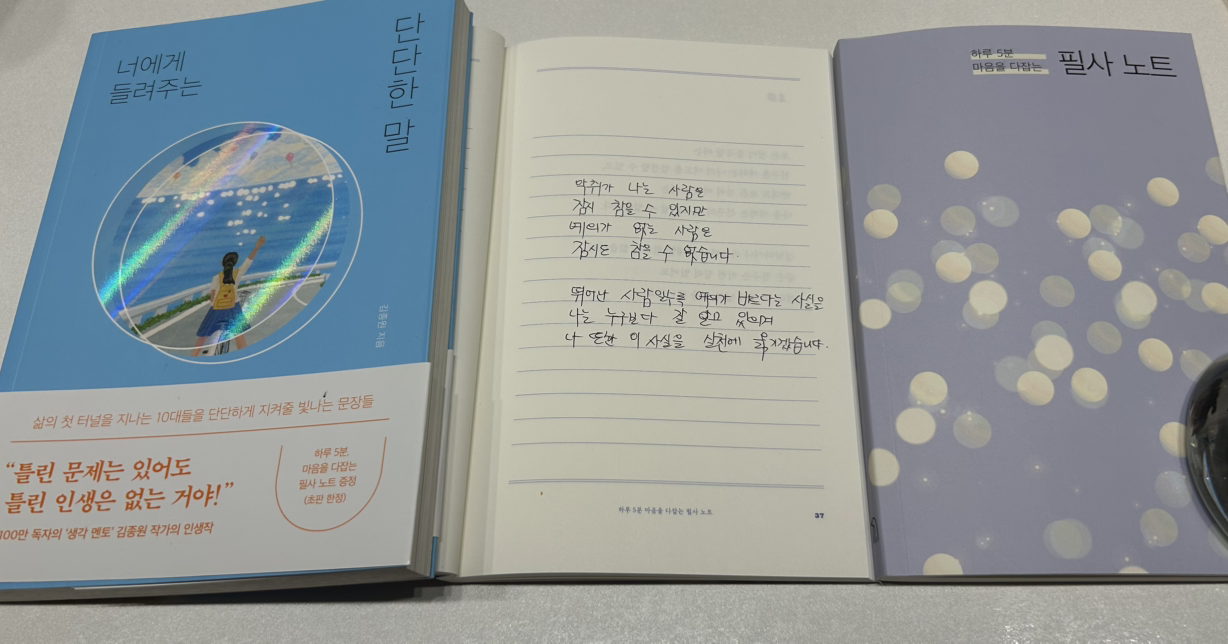 너에게
들려주는
단단한 말
김종원 지음
삶의 첫 터널을 지나는 10대들을 단단하게 지켜줄 빛나는 문장들
“틀린 문제는 있어도
틀린 인생은 없는 거야!”
100만 독자의 '생각 멘토' 김종원 작가의 인생작
하루 5분,
마음을 다잡는
필사 노트 증정
(초판 한정)
악취가 나는 사람은
잠시 참을 수 있지만
예의가 없는 사람은
잠시도 참을 수 없습니다.
뛰어난 사람일수록 예의가 바르다는 사실을
나는 누구보다 잘 알고 있으며
나 또한 이 사실을 실천에 옮기겠습니다.
하루 5분 마음을 다잡는 필사 노트
37
하루 5분
마음을 다잡는
필사 노트